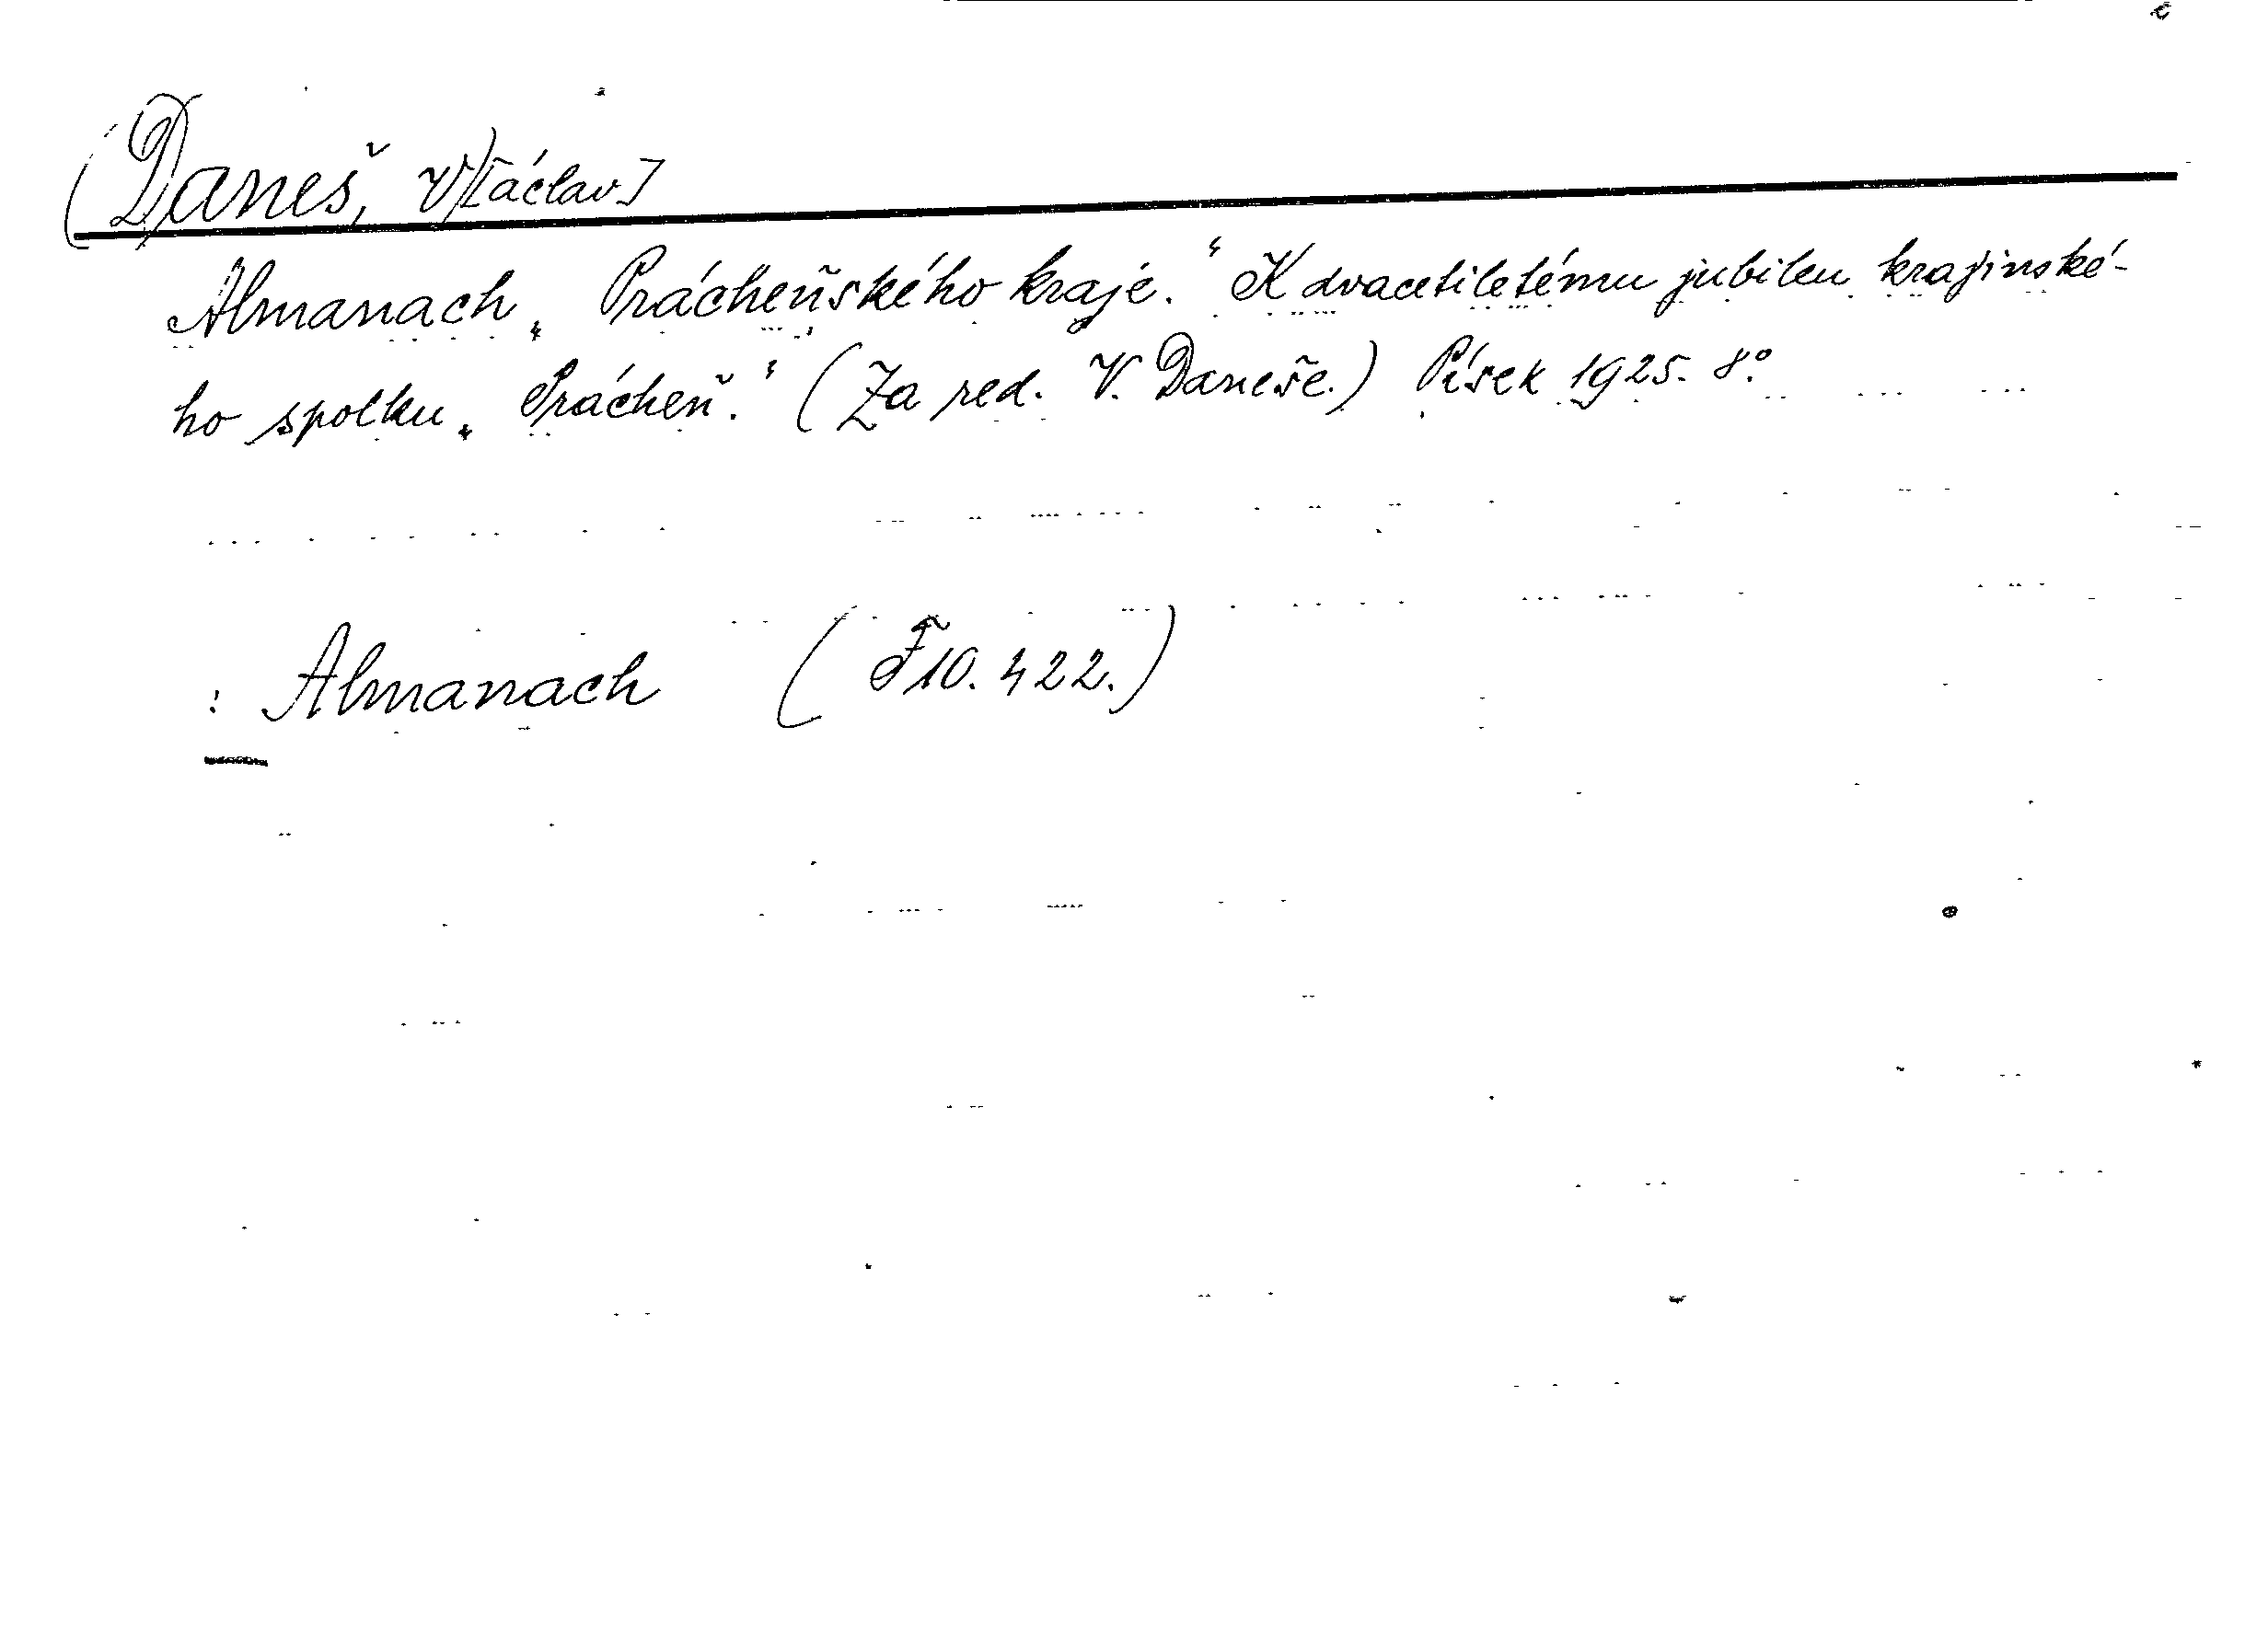 (Daneš, V)[áclav]
Almanach „Prácheňského kraje.“ K dvacetiletému jubileu krajinské-
ho spolku „Prácheň.“ (Za red. V. Daneše.) Písek 1925. 8°.
: Almanach (F 10.422.)